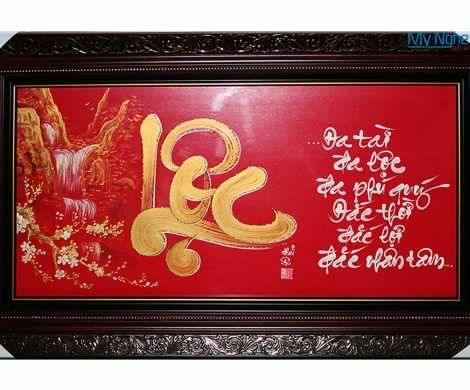 My Nghệ
Lộc
...Đa tài
Đa lộc
Đa phú quý
Đắc thời
Đắc lợi
Đắc nhân tâm...